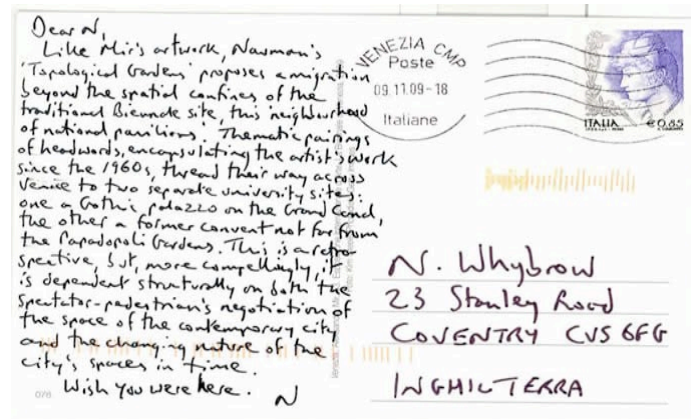 Dear N,
Like Mir's artwork, Nauman's
'Topological Gardens' proposes a migration
beyond the spatial confines of the
traditional Biennale site, this neighbourhood
of national pavilions. Thematic pairings
of headwords, encapsulating the artist's work
since the 1960s, thread their way across
Venice to two separate university sites:
one a Gothic palazzo on the Grand Canal,
the other a former convent not far from
the Papadopoli Gardens. This is a retro-
spective, but, more compellingly, it
is dependent structurally on both the
spectator-pedestrian's negotiation of
the space of the contemporary city
and the changing nature of the
city's spaces in time.
Wish you were here.
N
076
VENEZIA CMP
Poste
09.11.09-18
Italiane
ITALIA €0,85
N. Whybrow
23 Stanley Road
COVENTRY CV5 6FG
INGHILTERRA